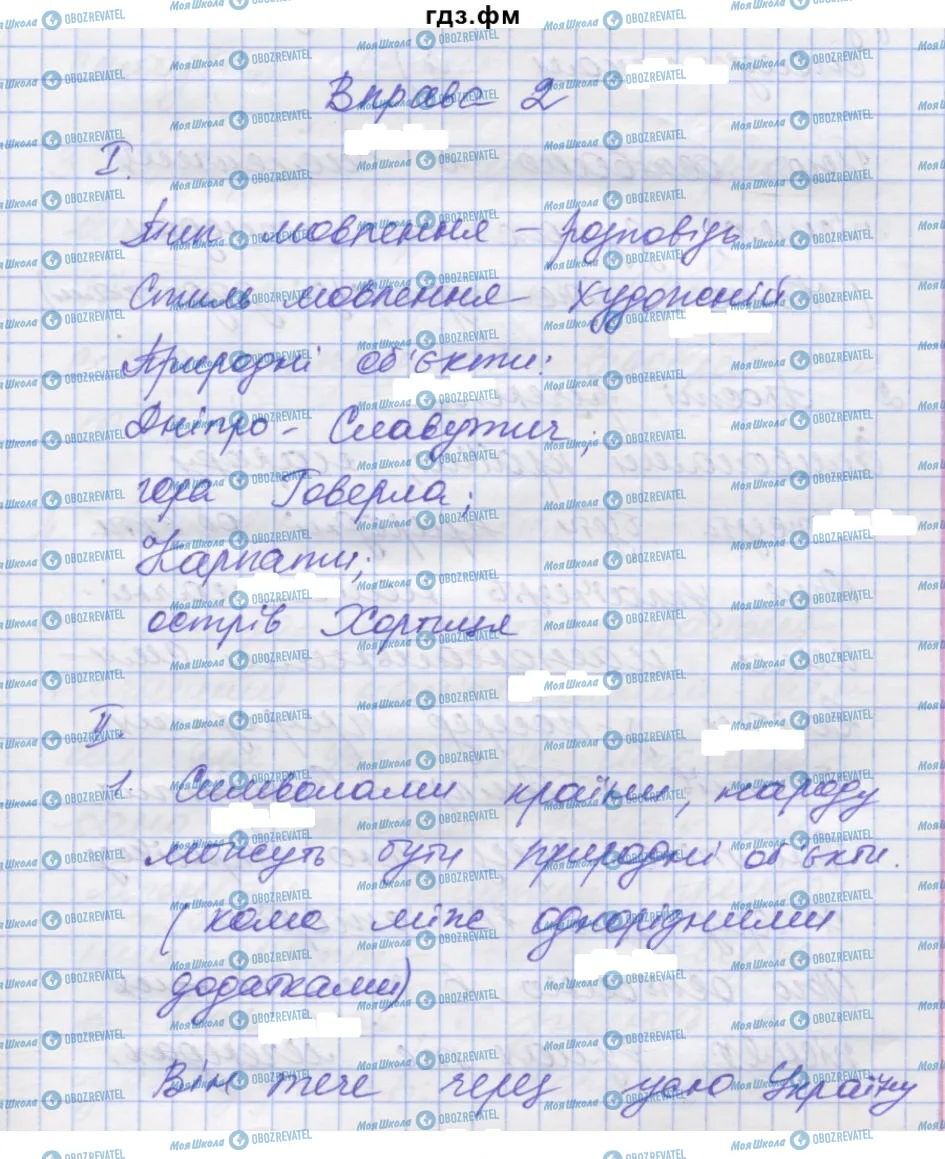 гдз.фм
Вправа 2
I.
Тип мовлення – розповідь
Стиль мовлення – художній
Природні об'єкти:
Дніпро - Славутич;
гора Говерла;
Карпати;
острів Хортиця
II.
1. Символами країни, народу
можуть бути природні об'єкти.
(кома між однорідними
додатками)
Він тече через усю Україну
МояШкола OBOZREVATEL